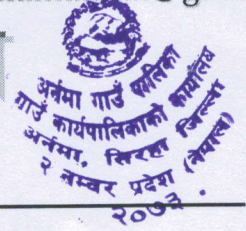 अर्नमा गाउँ पालिका
गाउँ कार्यपालिकाको कार्यालय
अर्नमा, सिरहा जिल्ला
२ नम्वर प्रदेश (नेपाल)
२०७३